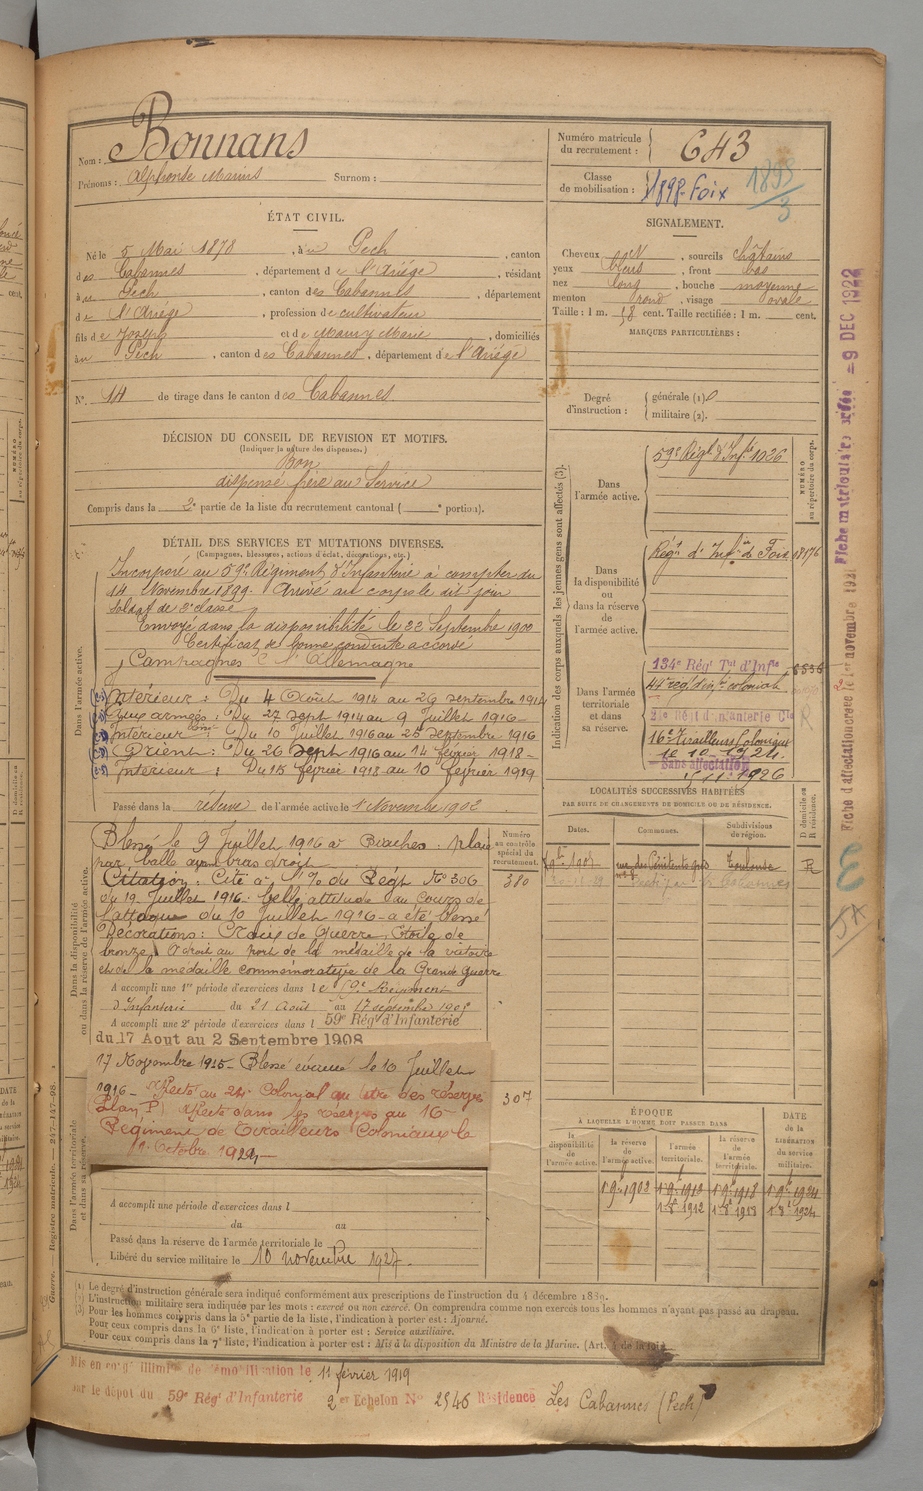 Nom : Bonnans
Prénoms : Alphonse Marius Surnom :
Numéro matricule du recrutement : 643
Classe de mobilisation : 1898-Foix
1898/3
ÉTAT CIVIL.
Né le 5 Mai 1878, à Pech, canton
des Cabannes, département de l'Ariège, résidant
à Pech, canton des Cabannes, département
de l'Ariège, profession de cultivateur
fils de Joseph et de Maury Marie, domiciliés
à Pech, canton des Cabannes, département de l'Ariège
N° 14 de tirage dans le canton des Cabannes
SIGNALEMENT.
Cheveux, sourcils châtains
yeux bleus, front bas
nez long, bouche moyenne
menton rond, visage ovale
Taille : 1 m. 58 cent. Taille rectifiée : 1 m. cent.
MARQUES PARTICULIÈRES :
Degré d'instruction : générale (1)
militaire (2).
DÉCISION DU CONSEIL DE REVISION ET MOTIFS.
(Indiquer la nature des dispenses.)
Bon
dispensé frère au Service
Compris dans la 2e partie de la liste du recrutement cantonal ( e portion).
DÉTAIL DES SERVICES ET MUTATIONS DIVERSES.
(Campagnes, blessures, actions d'éclat, décorations, etc.)
Dans l'armée active.
Incorporé au 59e Régiment d'Infanterie à compter du
14 Novembre 1899. Arrivé au corps le dit jour
Soldat de 2e classe
Envoyé dans la disponibilité le 22 Septembre 1900
Certificat de bonne conduite accordé
Campagnes c l'Allemagne
Intérieur : Du 4 Août 1914 au 26 septembre 1914
aux armées : Du 27 sept 1914 au 9 Juillet 1916
Intérieur : Du 10 Juillet 1916 au 25 septembre 1916
Orient : Du 26 sept 1916 au 14 février 1918
Intérieur : Du 15 février 1918 au 10 février 1919
Passé dans la réserve de l'armée active le 1 Novembre 1902
Indication des corps auxquels les jeunes gens sont affectés (3).
NUMÉRO au répertoire du corps.
Dans l'armée active. 59e Régt d'Infie 1026
Dans la disponibilité ou dans la réserve de l'armée active. Régt d'Infie de Foix 18176
Dans l'armée territoriale et dans sa réserve. 134e Régt Tal d'Infie
44e rég d'inf coloniale
21e Régt d'Infanterie Cle
16e Tirailleurs Coloniaux
1e 10-1924.
Sans affectation
R
Dans la disponibilité ou dans la réserve de l'armée active.
Blessé le 9 Juillet 1916 à Biaches : plaie
par balle avant bras droit
Citation : Cité à l'O/ du Régt N° 306
du 19 Juillet 1916 : belle attitude au cours de
l'attaque du 10 Juillet 1916 - a été blessé
Décorations : Croix de Guerre, Etoile de
bronze. A droit au port de la médaille de la victoire
et de la médaille commémorative de la Grande Guerre
A accompli une 1re période d'exercices dans le 59e Régiment
d'Infanterie du 21 Août au 17 septembre 1905
A accompli une 2e période d'exercices dans l 59e Régt d'Infanterie
du 17 Aout au 2 Septembre 1908
Numéro au contrôle spécial du recrutement
380
307
17 Novembre 1915 - Blessé évacué le 10 Juillet
1916 - Affecté au 24e Colonial au titre des réserves
(Plan P) affecté dans les réserves au 16e
Régiment de Tirailleurs Coloniaux le
1er Octobre 1924
Dans l'armée territoriale et dans sa réserve.
A accompli une période d'exercices dans l
du au
Passé dans la réserve de l'armée territoriale le
Libéré du service militaire le 10 novembre 1927.
LOCALITÉS SUCCESSIVES HABITÉES
PAR SUITE DE CHANGEMENTS DE DOMICILE OU DE RÉSIDENCE.
Dates. Communes. Subdivisions de région. D domicile ou R résidence.
rue des Pénitents gris n° 8 Toulouse R
ÉPOQUE
À LAQUELLE L'HOMME DOIT PASSER DANS
la disponibilité de l'armée active. la réserve de l'armée active. l'armée territoriale. la réserve de l'armée territoriale. DATE de la LIBÉRATION du service militaire.
1 9e 1902 1 9e 1912 1 9e 1918 1 9e 1924
1 8e 1912 1 8e 1918 1 8e 1924
Le degré d'instruction générale sera indiqué conformément aux prescriptions de l'instruction du 4 décembre 1889.
L'instruction militaire sera indiquée par les mots : exercé ou non exercé. On comprendra comme non exercés tous les hommes n'ayant pas passé au drapeau.
Pour les hommes compris dans la 5e partie de la liste, l'indication à porter est : Ajourné.
Pour ceux compris dans la 6e liste, l'indication à porter est : Service auxiliaire.
Pour ceux compris dans la 7e liste, l'indication à porter est : Mis à la disposition du Ministre de la Marine. (Art. 4 de la loi)
Mis en congé illimité de démobilisation le 11 février 1919
par le dépôt du 59e Régt d'Infanterie 2 er Echelon N° 2546 Résidence Les Cabannes (Pech)
Guerre. — Registre matricule. — 247-147-98.
Fiche d'affectation créée le 1er novembre 1921 Fiche matriculaire vérifiée - 9 DEC 1922